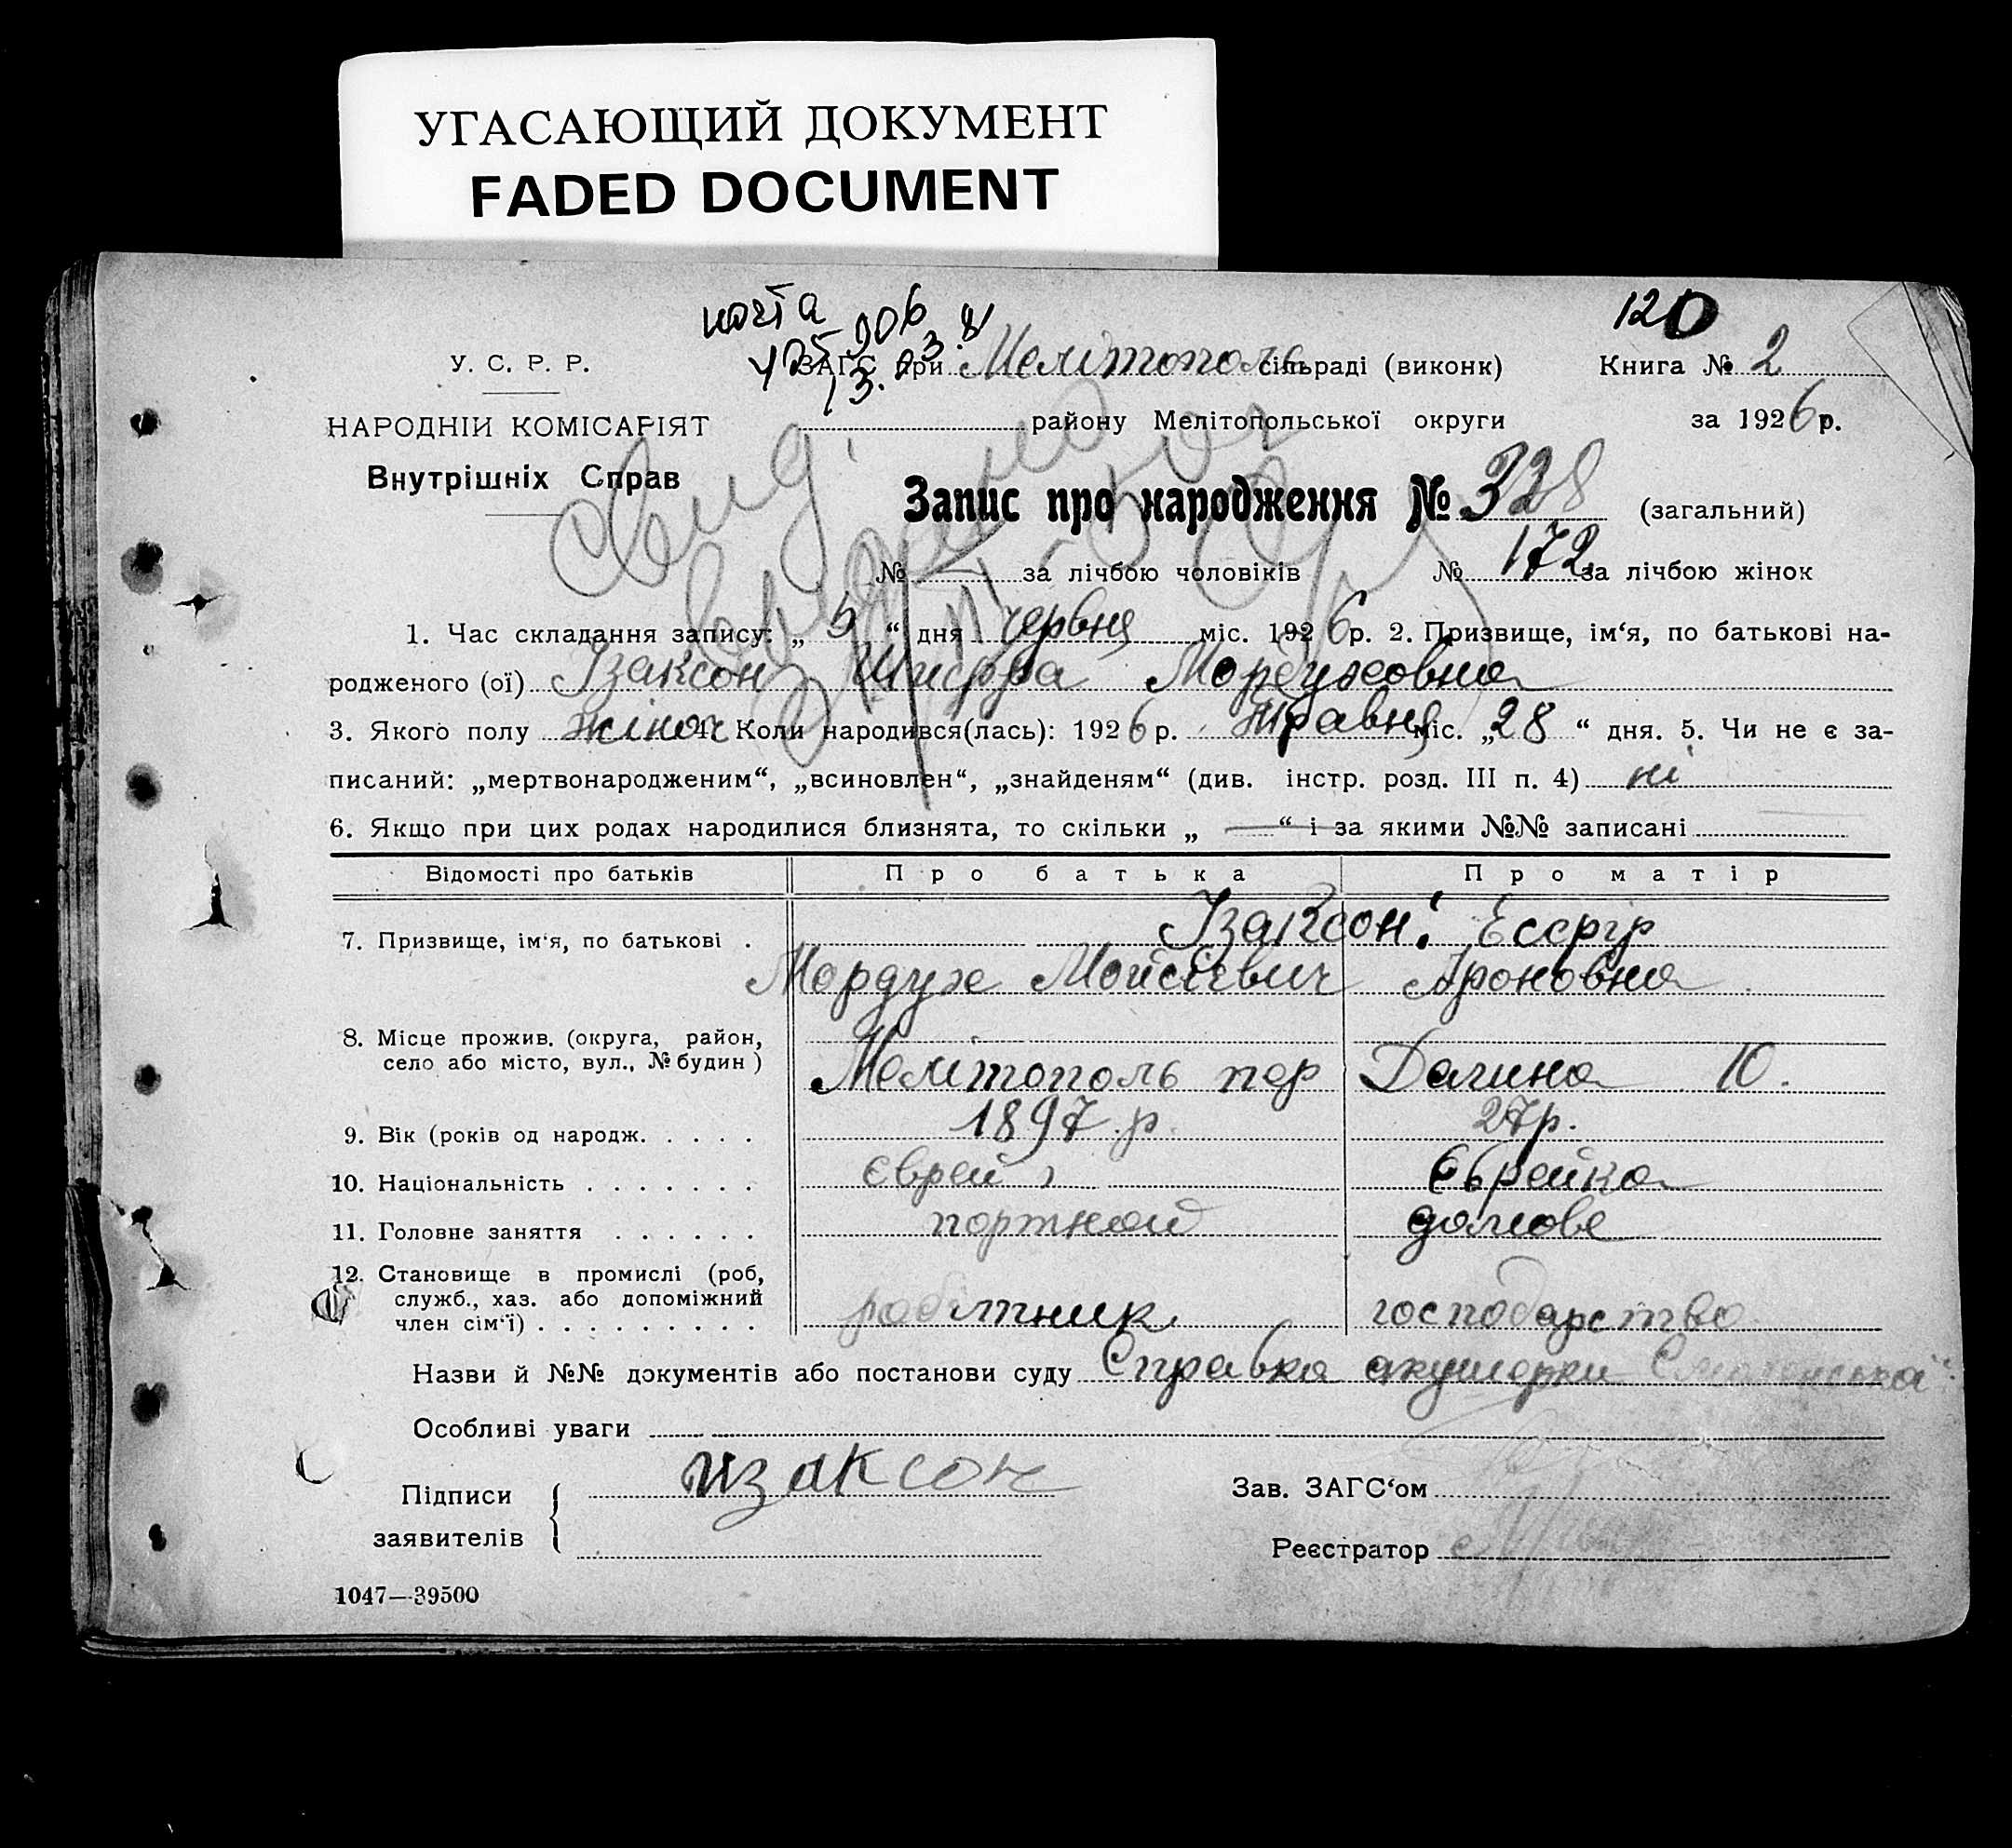 УГАСАЮЩИЙ ДОКУМЕНТ
FADED DOCUMENT
почта
120
У. С. Р. Р.
ЗАГС при Мелітополь сільраді (виконк) Книга № 2
НАРОДНІЙ КОМІСАРІЯТ
району Мелітопольської округи за 1926 р.
Внутрішніх Справ
Запис про народження № 328 (загальний)
№ за лічбою чоловіків № 172 за лічбою жінок
1. Час складання запису: „ 5 “ дня червня міс. 1926 р. 2. Призвище, ім‘я, по батькові на-
родженого (ої) Ізаксон Шифра Мордуховна
3. Якого полу жіноч 4. Коли народився(лась): 1926 р. травня міс. „ 28 “ дня. 5. Чи не є за-
писаний: „мертвонародженим“, „всиновлен“, „знайденям“ (див. інстр. розд. III п. 4) ні
6. Якщо при цих родах народилися близнята, то скільки „ — “ і за якими №№ записані
Відомості про батьків Про батька Про матір
Ізаксон: Есфір
7. Призвище, ім‘я, по батькові .
Мордух Мойсієвич Ароновна
8. Місце прожив. (округа, район,
село або місто, вул., № будин )
Мелітополь пер Далина 10.
9. Вік (років од народж. . . . . 1897 р. 27 р.
10. Національність . . . . . . . єврей Єврейка
11. Головне заняття . . . . . . портной домове
12. Становище в промислі (роб,
служб., хаз. або допоміжний
член сім‘ї) . . . . . . . . . робітник господарство
Назви й №№ документів або постанови суду Справка акушерки
Особливі уваги
Підписи
заявителів
Изаксон
Зав. ЗАГС‘ом
Реєстратор
1047—39500